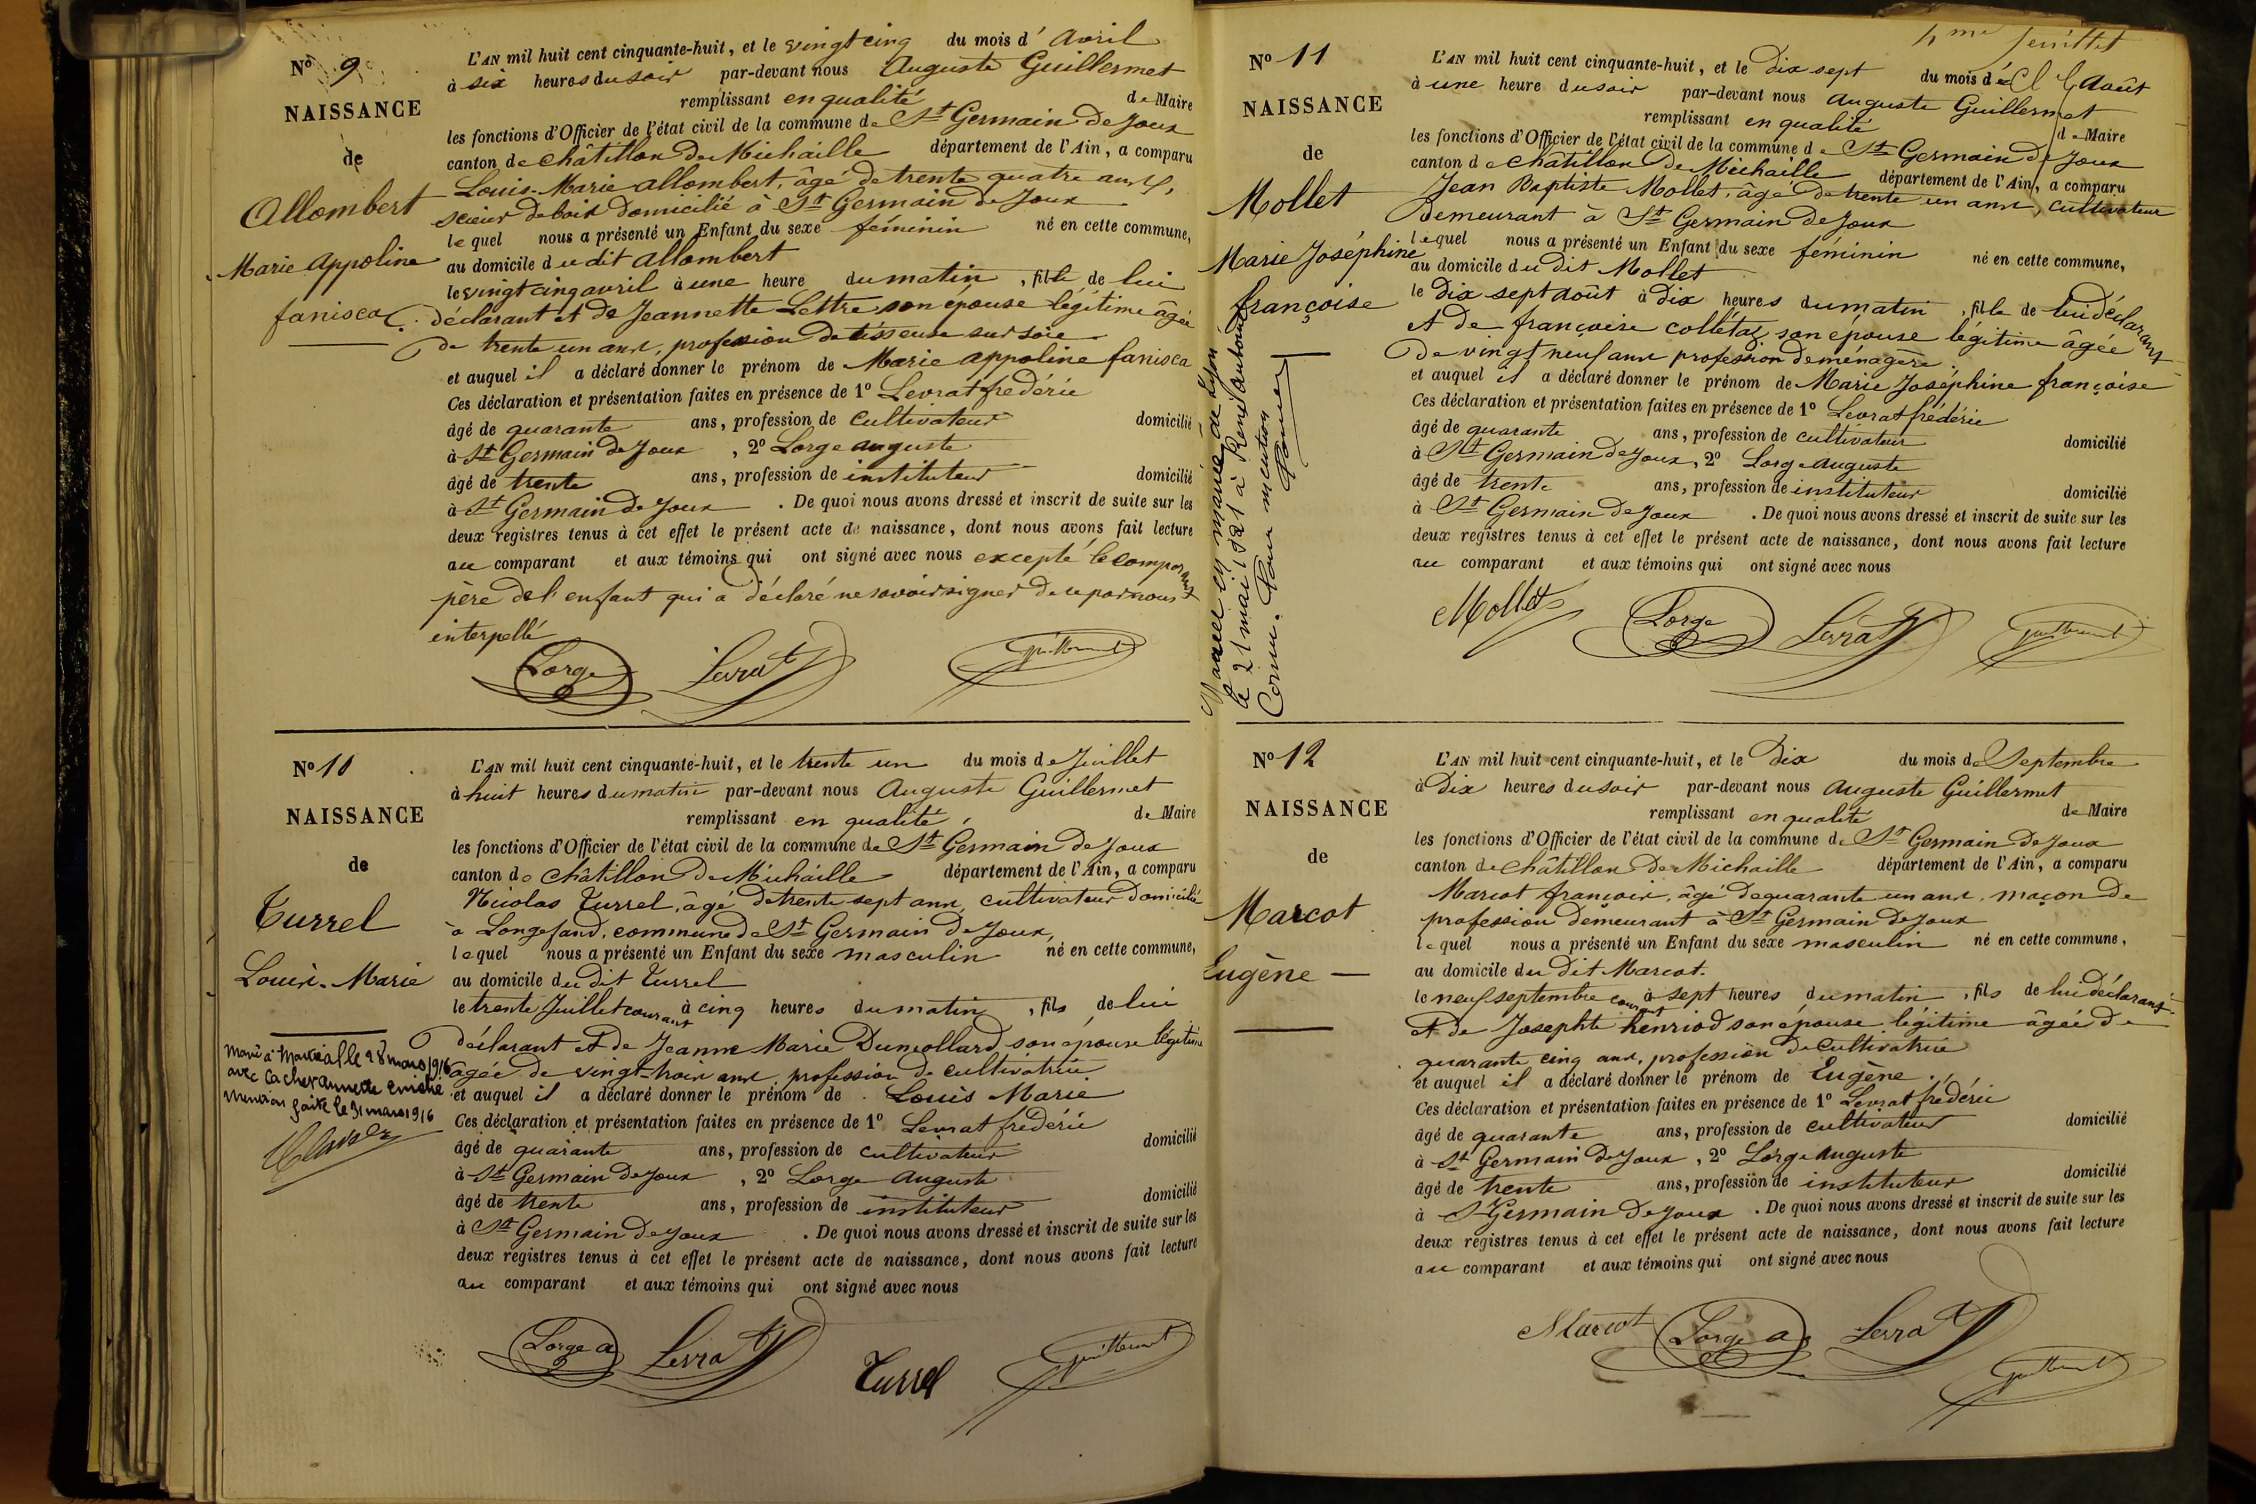 Nº 9
NAISSANCE
de
Allombert
Marie Appoline
fanisca
L'AN mil huit cent cinquante-huit, et le vingt cinq du mois d' Avril
à six heures du soir par-devant nous Auguste Guillermet
remplissant en qualité de Maire
les fonctions d'Officier de l'état civil de la commune de St Germain de Joux
canton de Châtillon de Michaille département de l'Ain, a comparu
Louis-Marie Allombert, âgé de trente quatre ans,
scieur de bois domicilié à St Germain de Joux
lequel nous a présenté un Enfant du sexe féminin né en cette commune,
au domicile du dit Allombert
le vingt cinq avril à une heure du matin, fille de lui
déclarant et de Jeannette Lettre son épouse légitime âgée
de trente un ans, profession de tisseuse sur soie
et auquel il a déclaré donner le prénom de Marie Appoline fanisca
Ces déclaration et présentation faites en présence de 1º Levrat frédéric
âgé de quarante ans, profession de cultivateur domicilié
à St Germain de Joux, 2º Lorge auguste
âgé de trente ans, profession de instituteur domicilié
à St Germain de Joux. De quoi nous avons dressé et inscrit de suite sur les
deux registres tenus à cet effet le présent acte de naissance, dont nous avons fait lecture
au comparant et aux témoins qui ont signé avec nous excepté le comparant
père de l'enfant qui a déclaré ne savoir signer de ce par nous
interpellé
Lorge Levrat Guillermet
Nº 10
NAISSANCE
de
Turrel
Louis-Marie
Marié à Martignat le 28 mars 1916
avec
mention faite le 31 mars 1916
L'AN mil huit cent cinquante-huit, et le trente un du mois de Juillet
à huit heures du matin par-devant nous Auguste Guillermet
remplissant en qualité de Maire
les fonctions d'Officier de l'état civil de la commune de St Germain de Joux
canton de Châtillon de Michaille département de l'Ain, a comparu
Nicolas Turrel, âgé de trente sept ans, cultivateur domicilié
à Longefand, commune de St Germain de Joux,
lequel nous a présenté un Enfant du sexe masculin né en cette commune,
au domicile du dit Turrel
le trente Juillet courant à cinq heures du matin, fils de lui
déclarant et de Jeanne Marie Dumollard son épouse légitime
âgée de vingt-trois ans profession de cultivatrice
et auquel il a déclaré donner le prénom de Louis Marie
Ces déclaration et présentation faites en présence de 1º Levrat frédéric
âgé de quarante ans, profession de cultivateur domicilié
à St Germain de Joux, 2º Lorge Auguste
âgé de trente ans, profession de instituteur domicilié
à St Germain de Joux. De quoi nous avons dressé et inscrit de suite sur les
deux registres tenus à cet effet le présent acte de naissance, dont nous avons fait lecture
au comparant et aux témoins qui ont signé avec nous
Lorge a Levrat Turrel Guillermet
4me feuillet
Nº 11
NAISSANCE
de
Mollet
Marie Joséphine
françoise
Mariée en mairie de Lyon
le 21 mai 1821 à René
Cornu. Pour mention
L'AN mil huit cent cinquante-huit, et le Dix sept du mois d' Août
à une heure du soir par-devant nous Auguste Guillermet
remplissant en qualité de Maire
les fonctions d'Officier de l'état civil de la commune de St Germain de Joux
canton de Châtillon de Michaille département de l'Ain, a comparu
Jean Baptiste Mollet, âgé de trente un ans, cultivateur
demeurant à St Germain de Joux
lequel nous a présenté un Enfant du sexe féminin né en cette commune,
au domicile du dit Mollet
le Dix sept août à dix heures du matin, fille de lui déclarant
et de françoise collétaz, son épouse légitime âgée
de vingt neuf ans profession de ménagère
et auquel il a déclaré donner le prénom de Marie Joséphine françoise
Ces déclaration et présentation faites en présence de 1º Levrat frédéric
âgé de quarante ans, profession de cultivateur domicilié
à St Germain de Joux, 2º Lorge auguste
âgé de trente ans, profession de instituteur domicilié
à St Germain de Joux. De quoi nous avons dressé et inscrit de suite sur les
deux registres tenus à cet effet le présent acte de naissance, dont nous avons fait lecture
au comparant et aux témoins qui ont signé avec nous
Mollet Lorge Levrat Guillermet
Nº 12
NAISSANCE
de
Marcot
Eugène
L'AN mil huit cent cinquante-huit, et le Dix du mois de Septembre
à Dix heures du soir par-devant nous Auguste Guillermet
remplissant en qualité de Maire
les fonctions d'Officier de l'état civil de la commune de St Germain de Joux
canton de Châtillon de Michaille département de l'Ain, a comparu
Marcot françois, âgé de quarante un ans, maçon de
profession demeurant à St Germain de Joux
lequel nous a présenté un Enfant du sexe masculin né en cette commune,
au domicile du dit Marcot.
le neuf septembre courant à sept heures du matin, fils de lui déclarant
et de Josephte henriod son épouse légitime âgée de
quarante cinq ans, profession de cultivatrice
et auquel il a déclaré donner le prénom de Eugène.
Ces déclaration et présentation faites en présence de 1º Levrat frédéric
âgé de quarante ans, profession de cultivateur domicilié
à St Germain de Joux, 2º Lorge Auguste
âgé de trente ans, profession de instituteur domicilié
à St Germain de Joux. De quoi nous avons dressé et inscrit de suite sur les
deux registres tenus à cet effet le présent acte de naissance, dont nous avons fait lecture
au comparant et aux témoins qui ont signé avec nous
Marcot Lorge a Levrat Guillermet